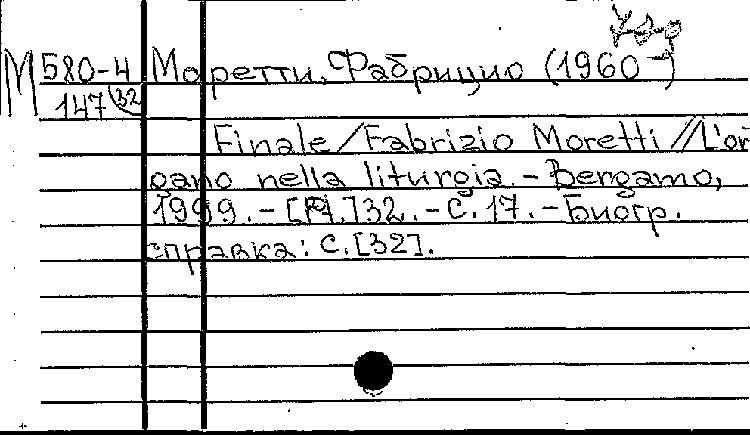 М 580-4 Моретти, Фабрицио (1960-)
147(32
Finale / Fabrizio Moretti // L'or
gano nella liturgia. - Bergamo,
1999. - [Pt.] 32. - С. 17. - Биогр.
справка: С. [32].